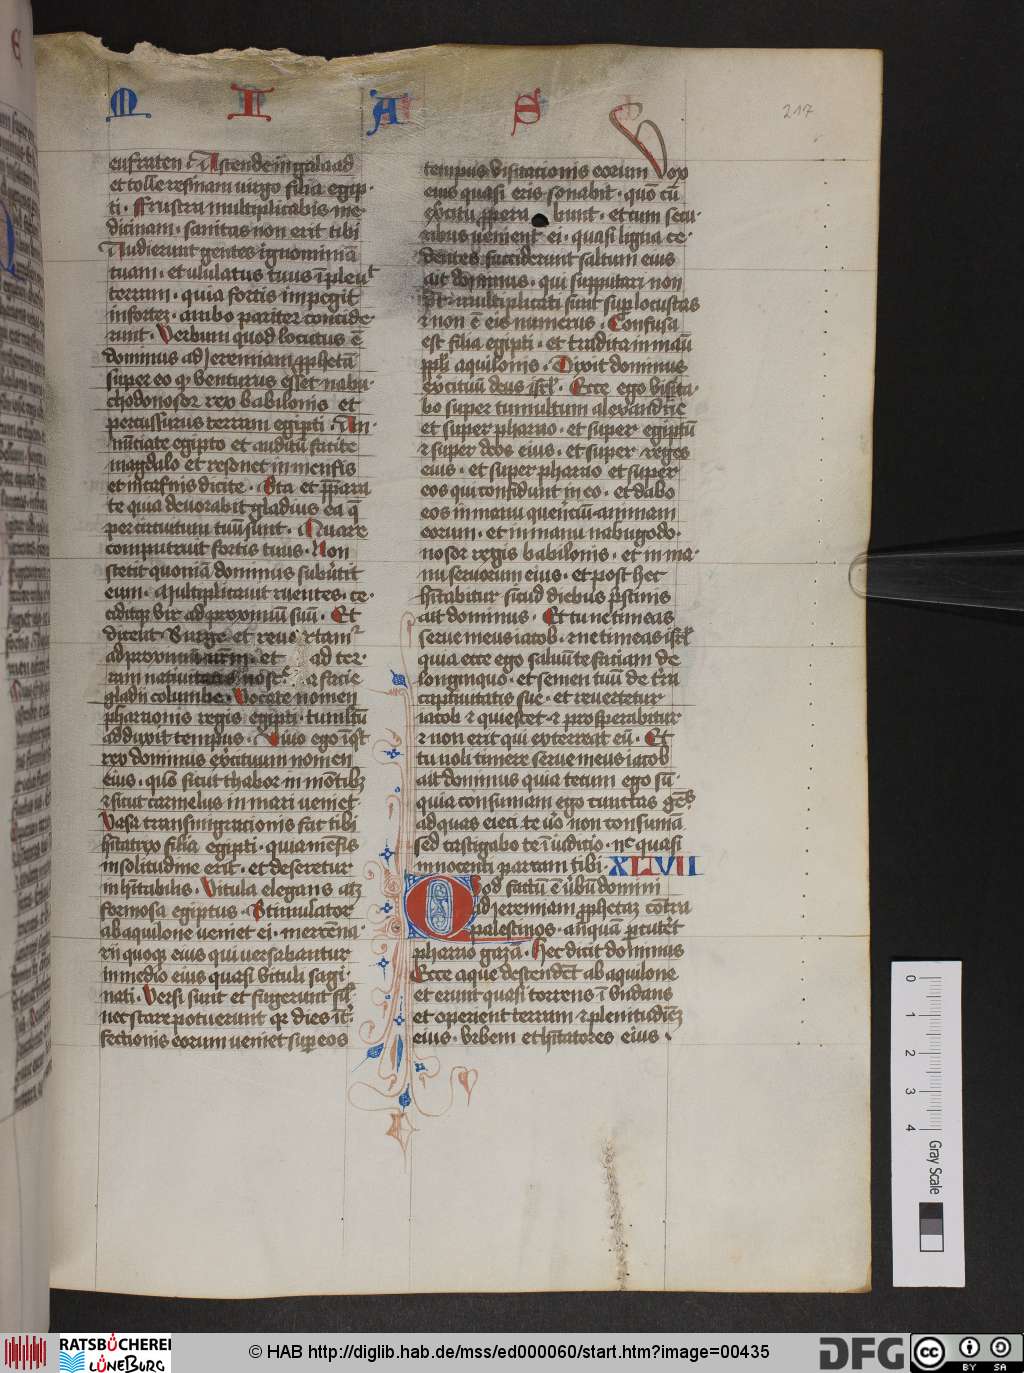 M I A S
217
eufraten. Ascende in galaad
et tolle resinam virgo filia egip-
ti. Frustra multiplicabis me-
dicinam. sanitas non erit tibi
Audierunt gentes ignominiā
tuam. et ululatus tuus īpleuᵗ
terram. quia fortis impegit
in fortez. ambo pariter concide-
runt. Verbum quod locutus ē
dominus ad Jeremiam ꝓphetā
super eo qͥ venturus esset nabu-
chodonosor rex babilonis et
percussurus terram egipti. An-
nūciate egipto et auditū facite
magdalo et resonet in mensis
et in tafnis dicite. Sta et p̄para
te quia devorabit gladius ea q̄
per circuitum tuū sunt. Quare
computruit fortis tuus. Non
stetit quoniā dominus subūtit
eum. Multiplicavit ruentes. ce-
ciditqꝫ vir ad proximū suū. Et
dicent. Surge et revertamᷣ
ad et ad ter-
ram nativitatis a facie
gladii columbe. Vocate nomen
pharaonis regis egipti. tumltū
adduxit tempus. Vivo ego īqͥt
rex dominus exͨituum nomen
eius. qm̄ sicut thabor in mōtibꝫ
⁊ sicut carmelus in mari veniet.
Vasa transmigracionis fac tibi
hītatrix filia egipti. quia mēfis
in solitudine erit. et deseretur
inhītabilis. Vitula elegans atqꝫ
formosa egiptus. Stimulator
ab aquilone veniet ei. mercena-
rii quoqꝫ eius qui versabantur
in medio eius quasi vituli sagi-
nati. Versi sunt et fugerunt sil̄.
nec stare potuerunt qꝛ dies īt̄-
fectionis eorum veniet sup eos
tempus visitacionis eorum Vox
eius quasi eris sonabit. quō cū
exͨitu ꝓpera bunt. et cum secu-
ribus venient ei. quasi ligna ce-
dentes succiderunt saltum eius
ait dominus. qui supputari non
pt̄. multiplicati sunt suꝑ locustas
⁊ non ē eis numerus. Confusa
est filia egipti. et tradita in manū
ppl̄i aquilonis. Dixit dominus
exͨituū deus isrl̄. Ecce ego visita-
bo super tumultum alexandrie
et super pharao. et super egiptū
⁊ super deos eius. et super reges
eius. et super pharao et super
eos qui confidunt in eo. et dabo
eos in manu querēciū animam
eorum. et in manu nabugodo-
nosor regis babilonis. et in ma-
nu servorum eius. et post hec
hītabitur sicud diebus p̄stinis
ait dominus. Et tu ne timeas
serve meus iacob. ⁊ ne timeas isrl̄
quia ecce ego salvū te faciam de
longinquo. et semen tuū de tr̄a
captivitatis sue. et revertetur
iacob ⁊ quiescet. ⁊ prosperabitur
⁊ non erit qui exterreat eū. Et
tu noli timere serve meus iacob
ait dominus quia tecum ego sū.
quia consumam ego cunctas gētes
ad quas eieci te. v̊o non consumā
sed castigabo te ī iudicio. nͨ quasi
innocenti parcam tibi. XLVII
Qvod factū ē v̊bū domini
ad Jeremiam ꝓphetaꝫ cōtra
palestinos. anqͣ ꝑcut̄et
pharao gazā. Hec dicit dominus
Ecce aque descendēt ab aquilone
et erunt quasi torrens ī undans
et operient terram ⁊ plenitudinēꝫ
eius. urbem et hītatores eius.
0 1 2 3 4
Gray Scale
RATSBÜCHEREI LÜNEBURG
© HAB http://diglib.hab.de/mss/ed000060/start.htm?image=00435
DFG
cc BY SA